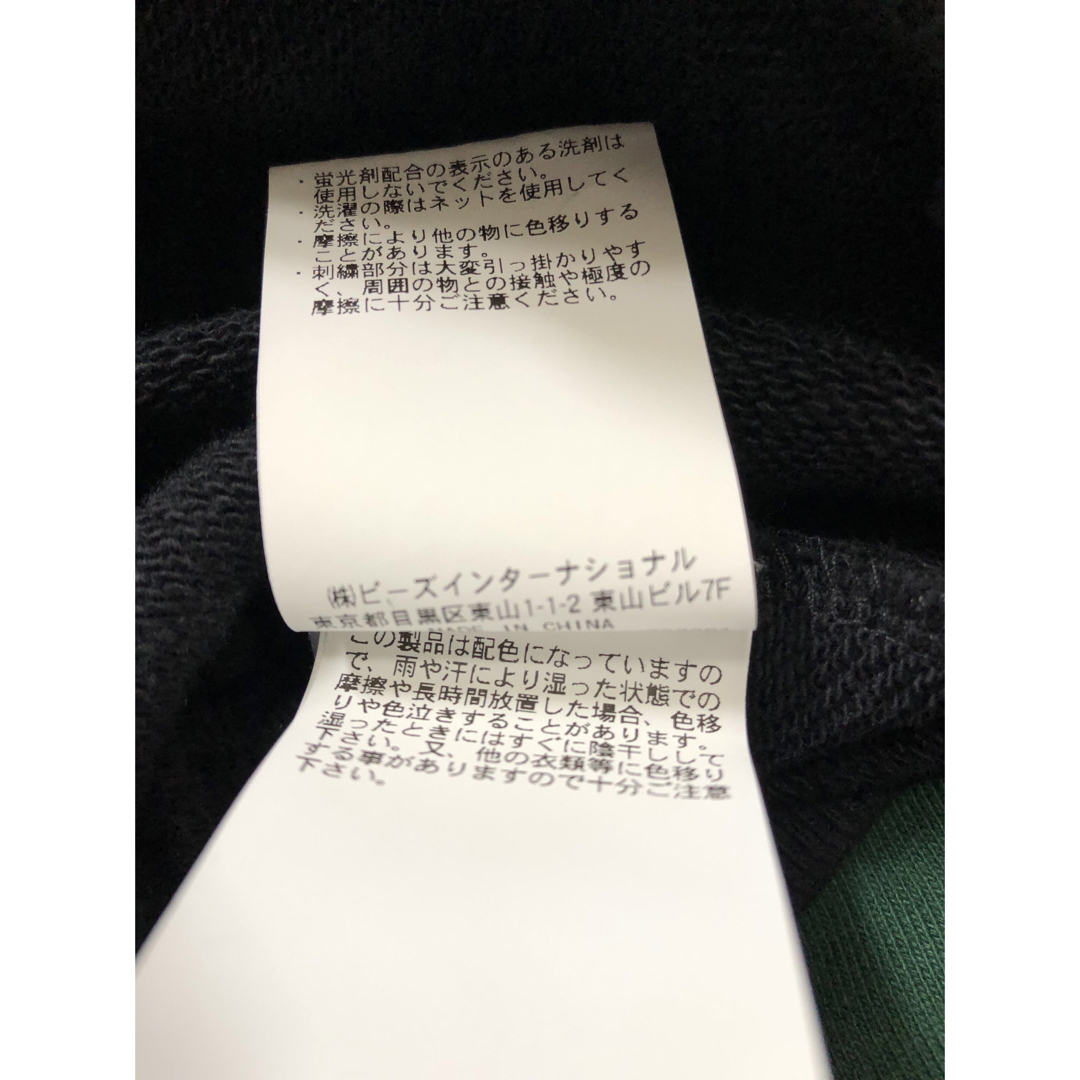 ・蛍光剤配合の表示のある洗剤は
使用しないでください。
・洗濯の際はネットを使用してく
ださい。
・摩擦により他の物に色移りする
ことがあります。
・刺繍部分は大変引っ掛かりやす
く、周囲の物との接触や極度の
摩擦に十分ご注意ください。
㈱ビーズインターナショナル
東京都目黒区東山1-1-2 東山ビル7F
MADE IN CHINA
この製品は配色になっていますの
で、雨や汗により湿った状態での
摩擦や長時間放置した場合、色移
りや色泣きすることがあります。
湿ったときにはすぐに陰干しして
下さい。又、他の衣類等に色移り
する事がありますので十分ご注意
下さい。